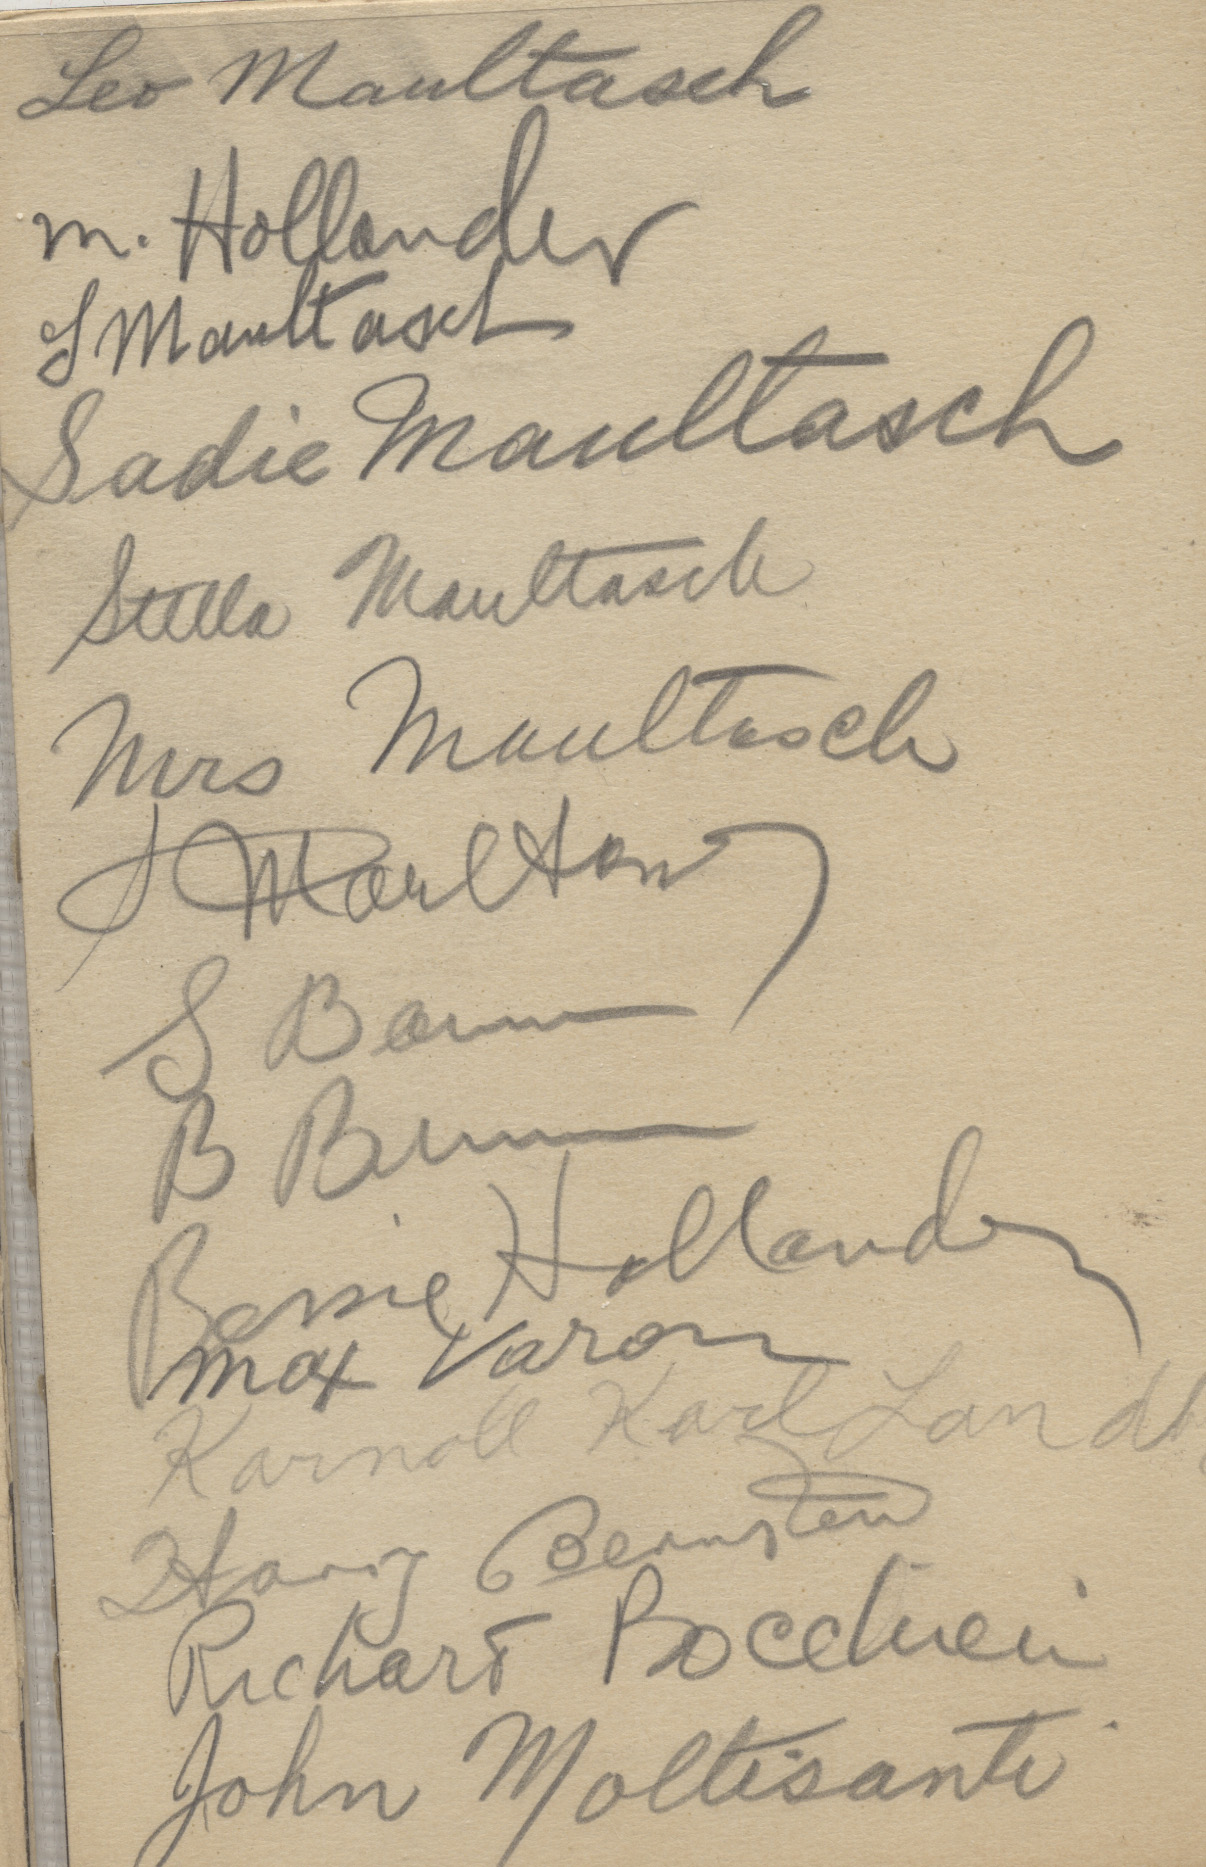 Leo Maultasch
M. Hollander
S Maultasch
Sadie Maultasch
Stella Maultasch
Mrs Maultasch
J Marlton
S
B
Bessie Hollander
Max Varon
Karl
Harry Bernstein
Richard
John Moltisanti